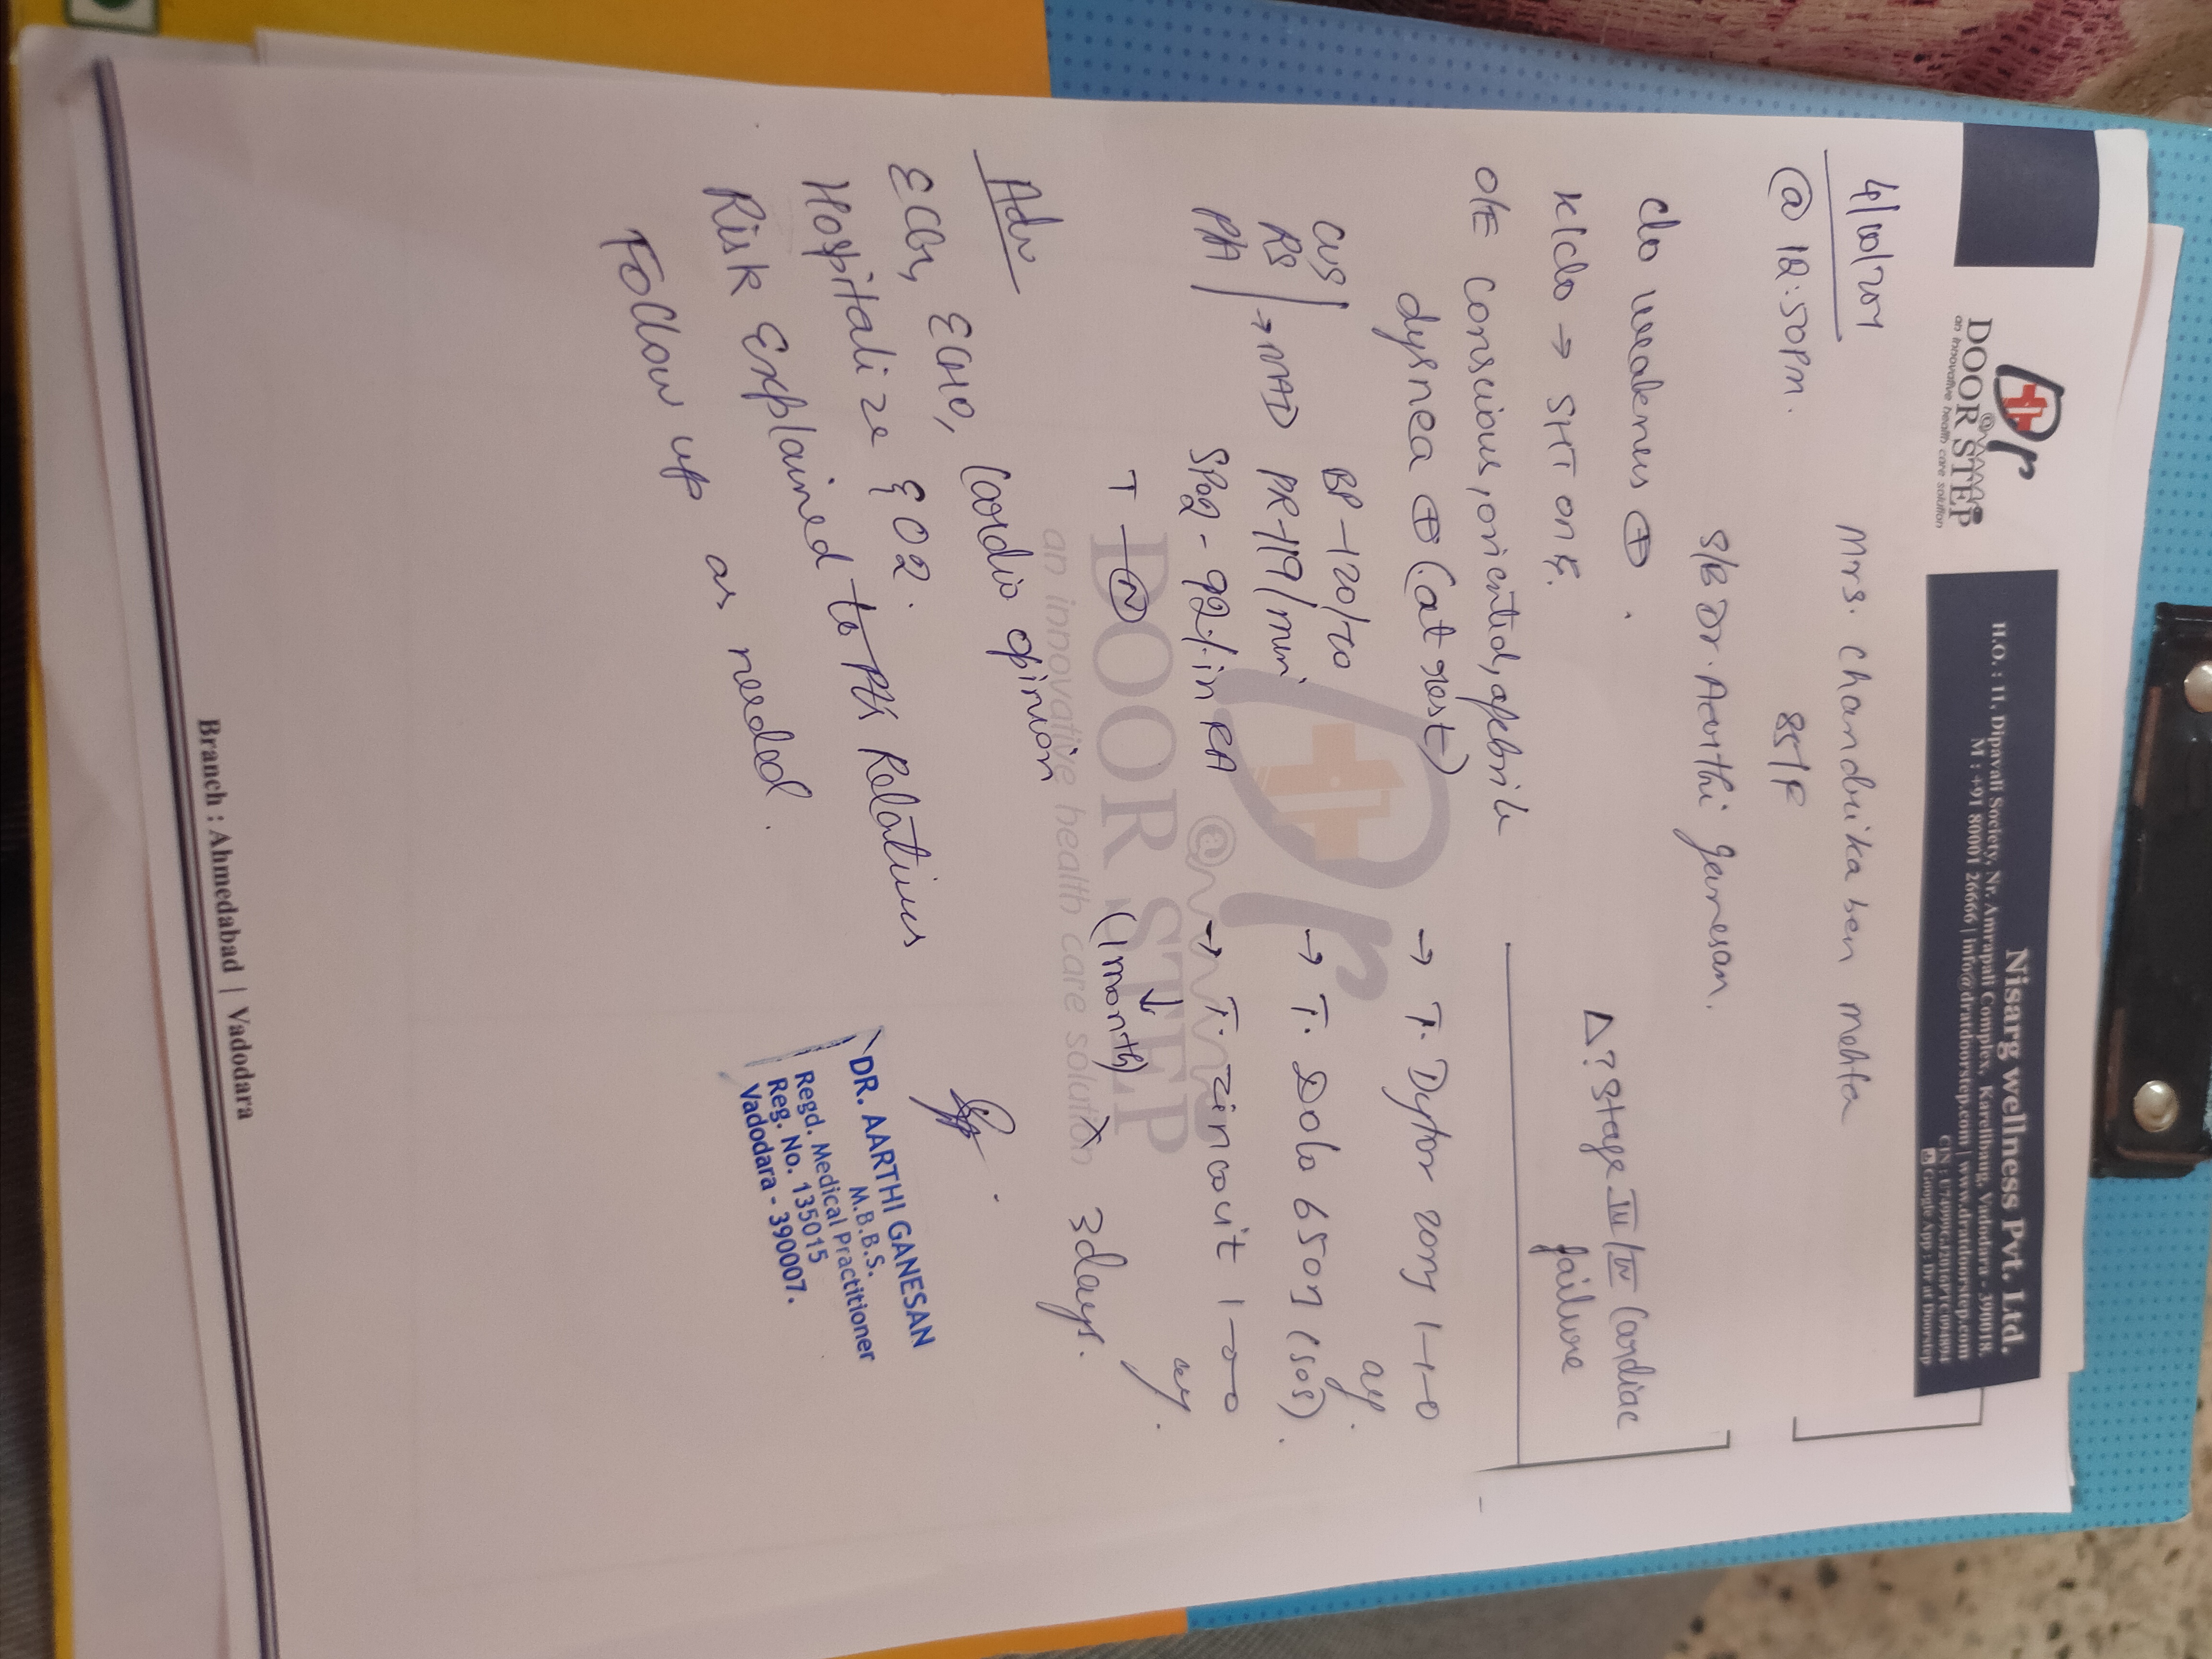 Dr
@
DOOR STEP
an innovative health care solution
Nisarg wellness Pvt. Ltd.
H.O. : 11, Dipavali Society, Nr. Amrapali Complex, Karelibaug, Vadodara - 390018.
M : +91 80001 26666 | info@dratdoorstep.com | www.dratdoorstep.com
Google App : Dr at Doorstep
Mrs. Chandrika ben mehta
@ 12:50pm. 85/F
S/B Dr. Aarthi Ganesan.
c/o weakness ⊕
K/c/o → SHT on
Δ ? Stage III/IV Cardiac
failure
O/E Conscious, oriented, afebrile
dysnea ⊕ (at rest)
CVS BP -120/
RS → NAD PR-119/min
PA SPO2 - 92% in RA
T - Ⓝ
→ T. Dytor 1-1-0
→ T. Dolo 650 (SOS).
→ T. zincovit 1-0-0
(1 month)
x 3days.
Adv
ECG, ECHO, Cardio opinion
Hospitalize O2.
Risk Explained to Pt's Relatives
Follow up as needed.
DR. AARTHI GANESAN
M.B.B.S.
Regd. Medical Practitioner
Reg. No. 135015
Vadodara - 390007.
Dr
@
DOOR STEP
an innovative health care solution
Branch : Ahmedabad | Vadodara